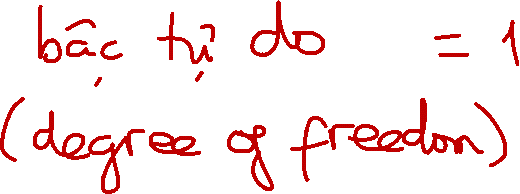 bậc tự do = 1
(degree of freedom)